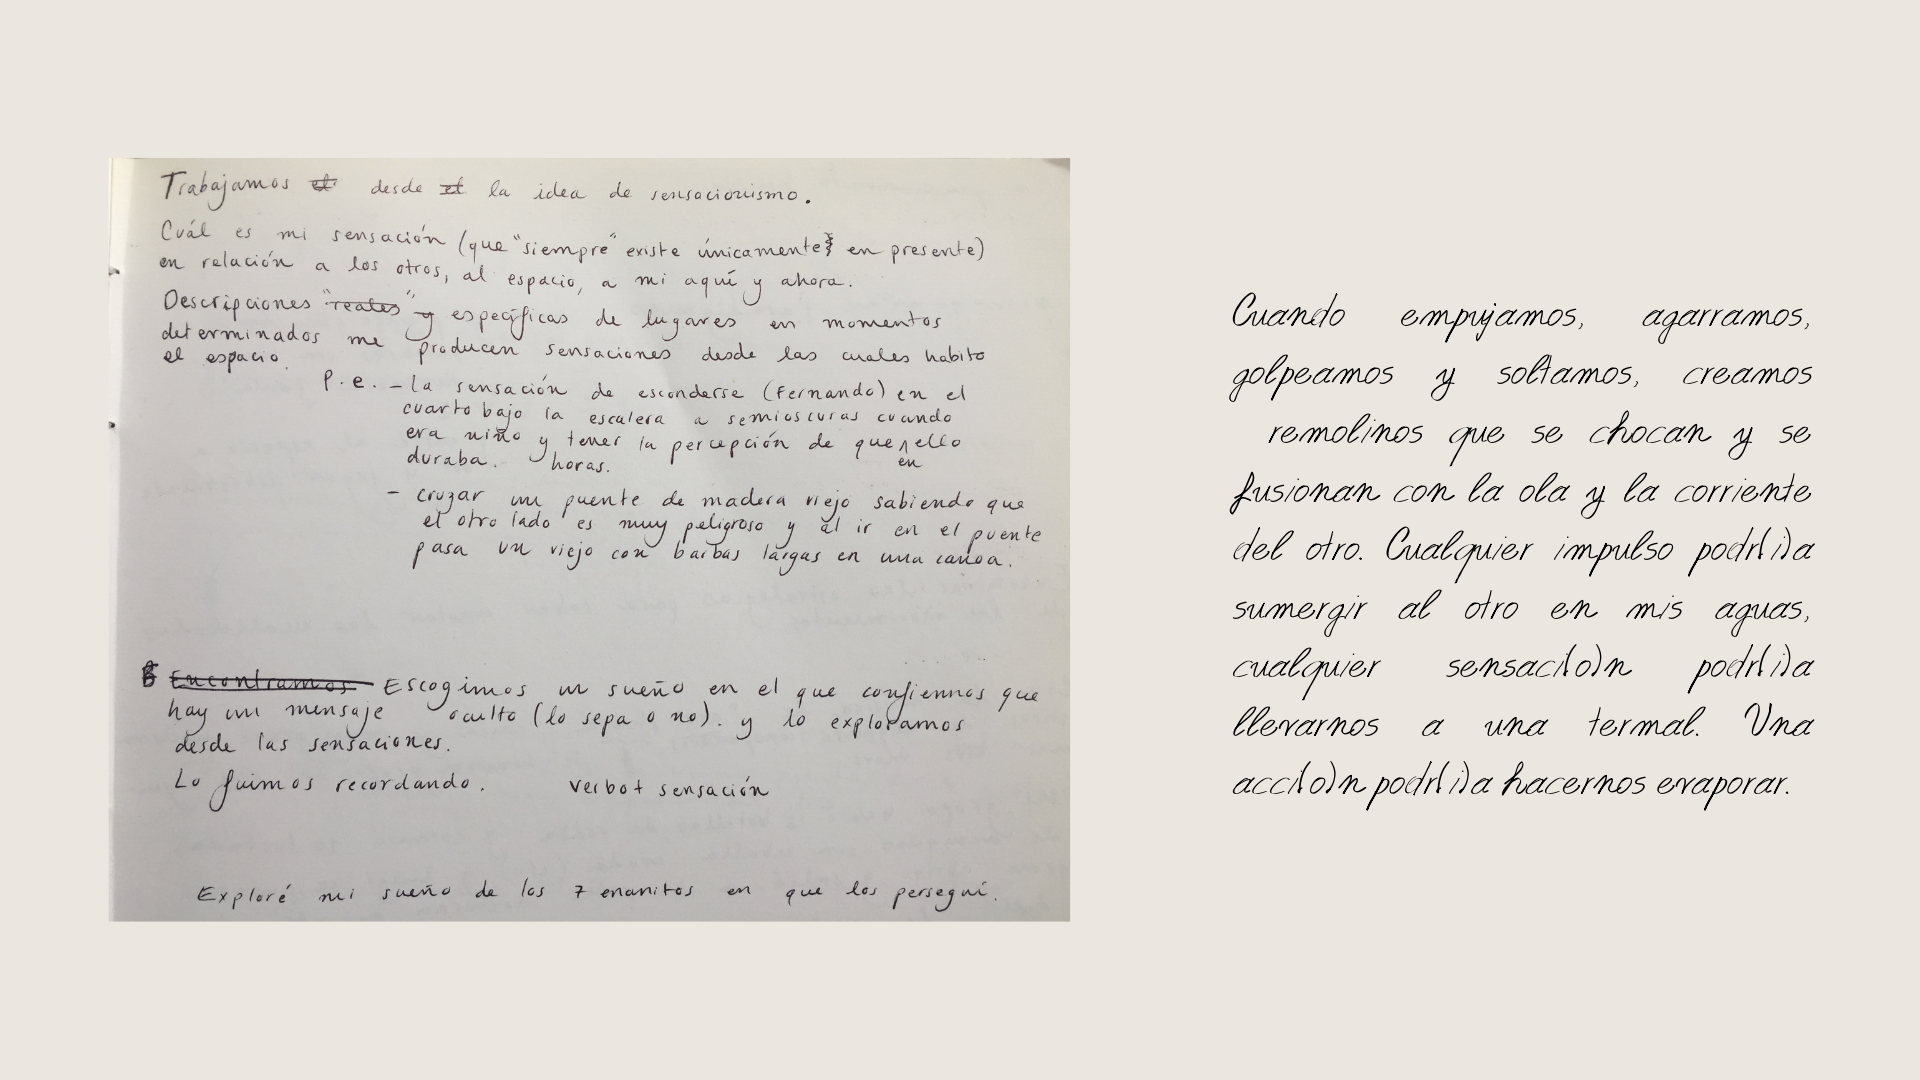 Trabajamos el desde el la idea de sensacionismo.
Cuál es mi sensación (que "siempre" existe únicamente en presente)
en relación a los otros, al espacio, a mi aquí y ahora.
Descripciones "reales" y específicas de lugares en momentos
determinados me producen sensaciones desde las cuales habito
el espacio.
P.e. - la sensación de esconderse (Fernando) en el
cuarto bajo la escalera a semioscuras cuando
era niño y tener la percepción de que ello
en
duraba. horas.
- cruzar un puente de madera viejo sabiendo que
el otro lado es muy peligroso y al ir en el puente
pasa un viejo con barbas largas en una canoa.
Encontramos Escogimos un sueño en el que confiemos que
hay un mensaje oculto (lo sepa o no). y lo exploramos
desde las sensaciones.
Lo fuimos recordando. verbo + sensación
Exploré mi sueño de los 7 enanitos en que los perseguí.
Cuando empujamos, agarramos,
golpeamos y soltamos, creamos
remolinos que se chocan y se
fusionan con la ola y la corriente
del otro. Cualquier impulso podr(i)a
sumergir al otro en mis aguas,
cualquier sensaci(o)n podr(i)a
llevarnos a una termal. Una
acci(o)n podr(i)a hacernos evaporar.